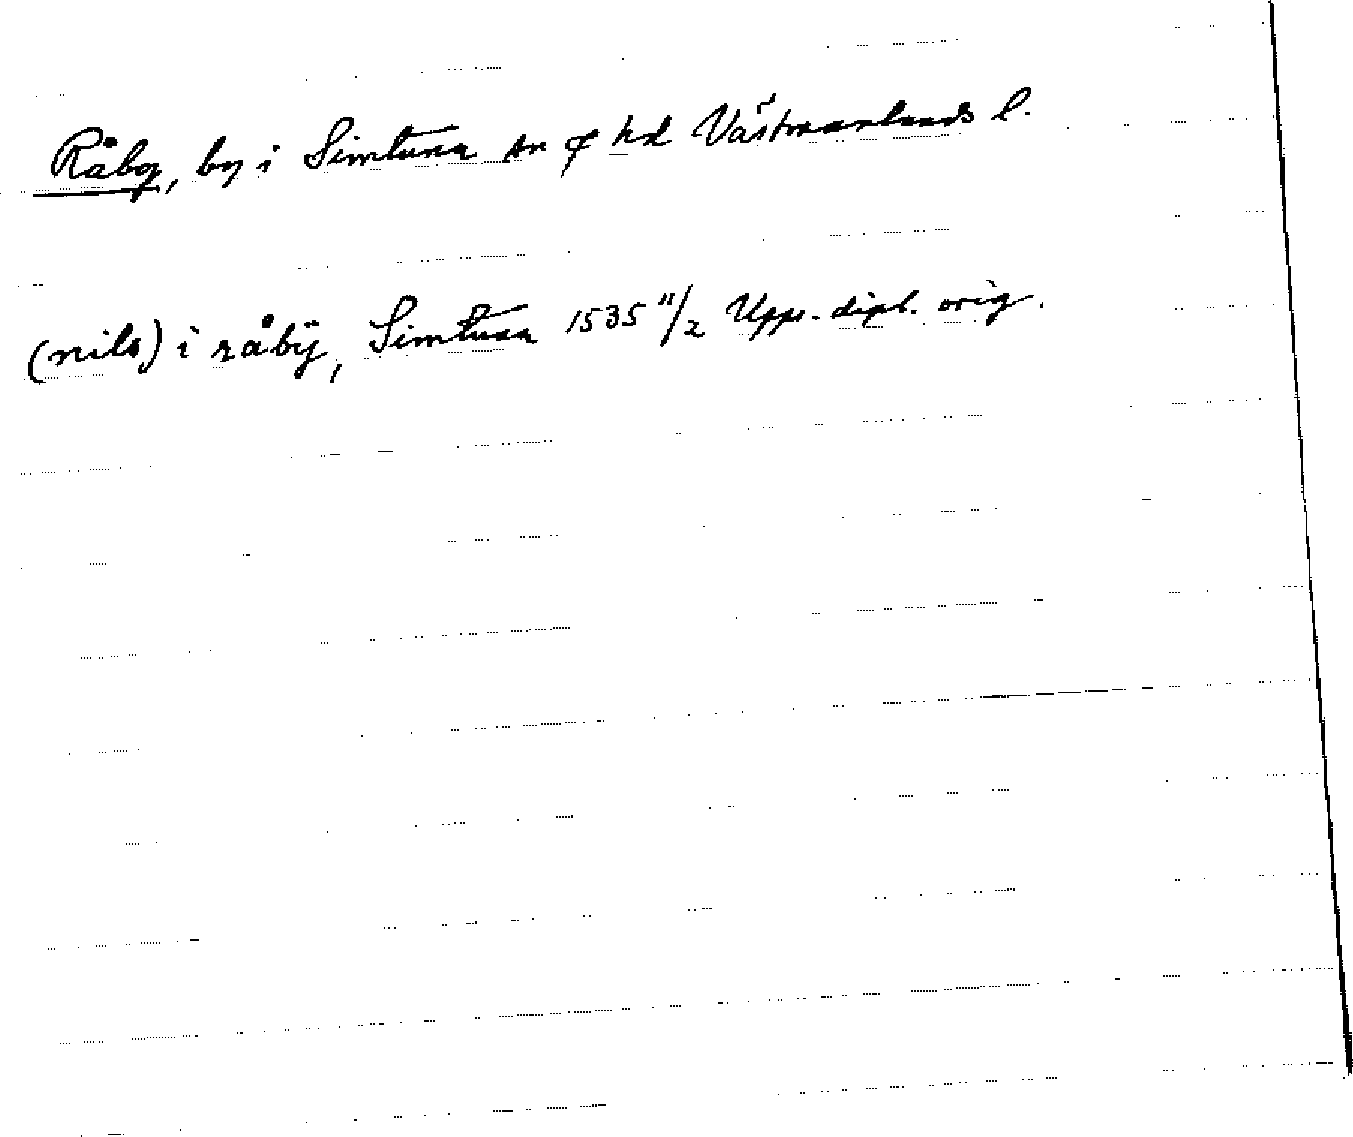 Råby, by i Simtuna sn o hd Västmanlands l.
(nils) i råbÿ, Simtuna 1535 11/2 Upps. dipl. orig.